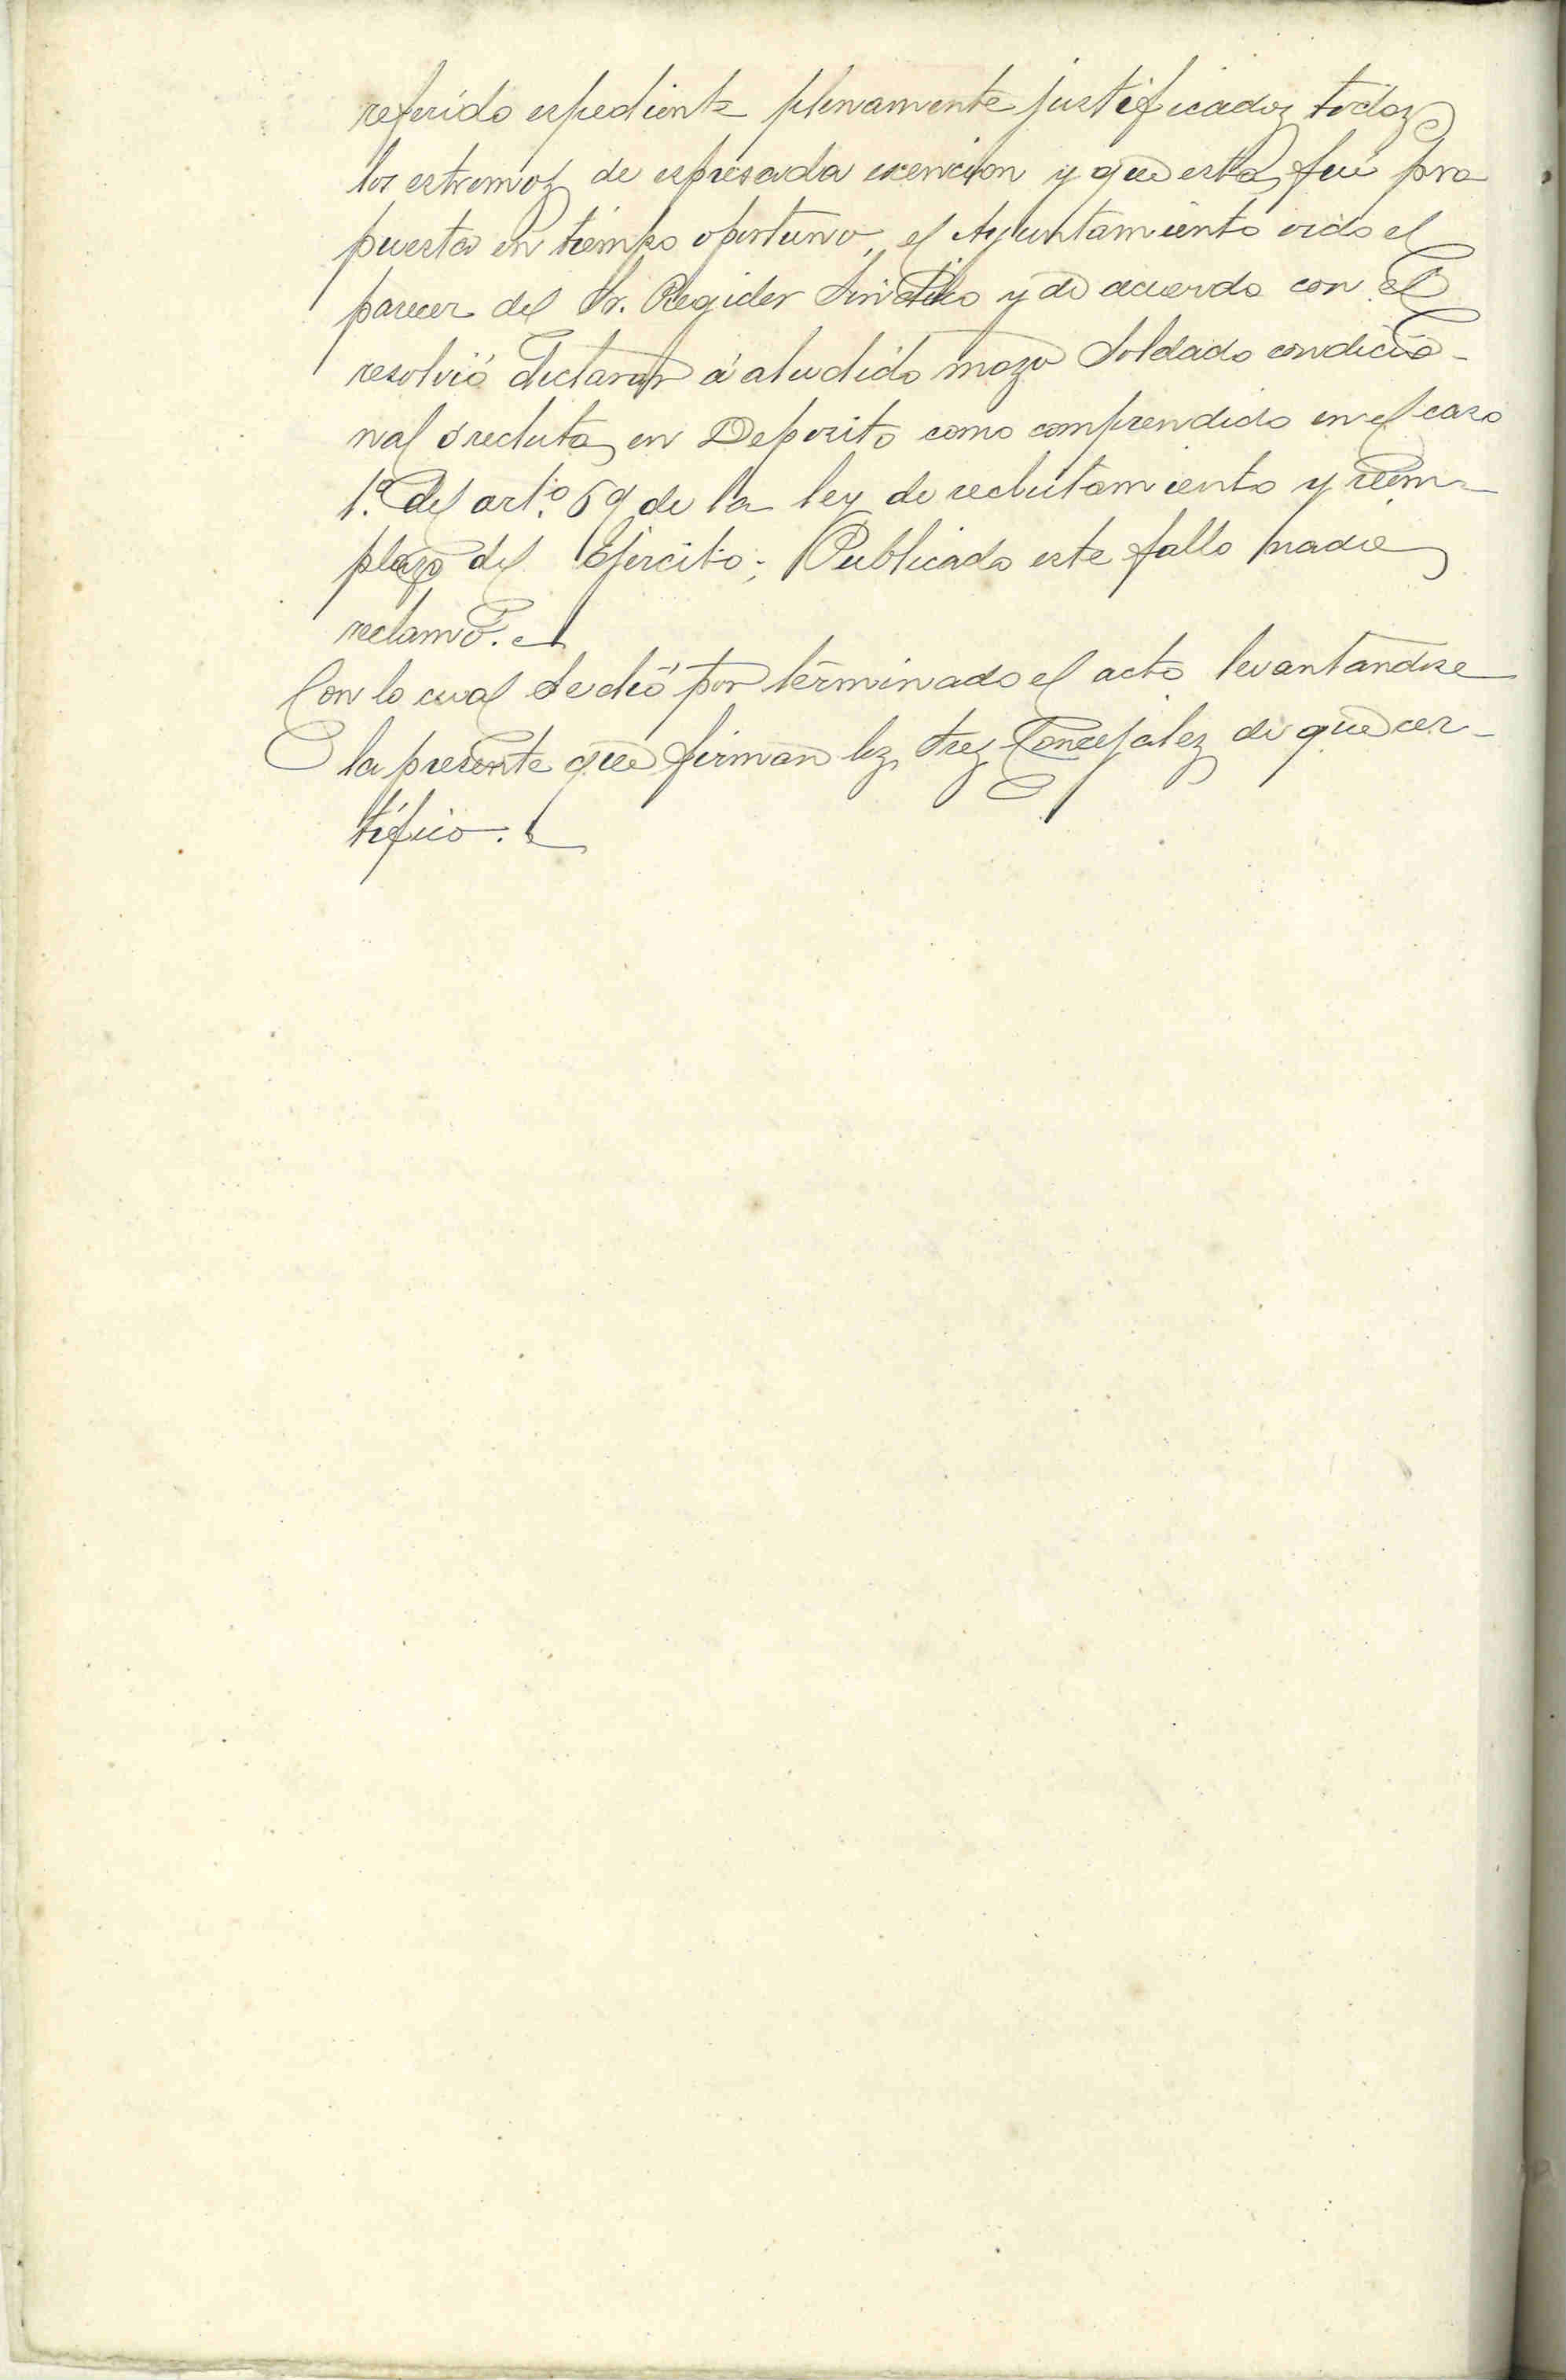 referido espediente plenamente justificados todos
los estremos de espresada exencion y que esta fué pro
puesta en tiempo oportuno, el Ayuntamiento oido el
parecer del Sr. Regidor Sindico y de acuerdo con el
resolvió declarar á aludido mozo Soldado condicio-
nal ó recluta en Deposito como comprendido en el caso
1.º del art.º 69 de la ley de reclutamiento y reem-
plazo del Ejército; Publicado este fallo nadie
reclamó.
Con lo cual se dió por terminado el acto levantandose
la presente que firman los Sres Concejales de que cer-
tifico.